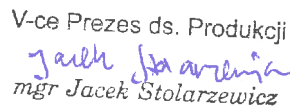 V-ce Prezes ds. Produkcji
Jacek Stolarzewicz
mgr Jacek Stolarzewicz